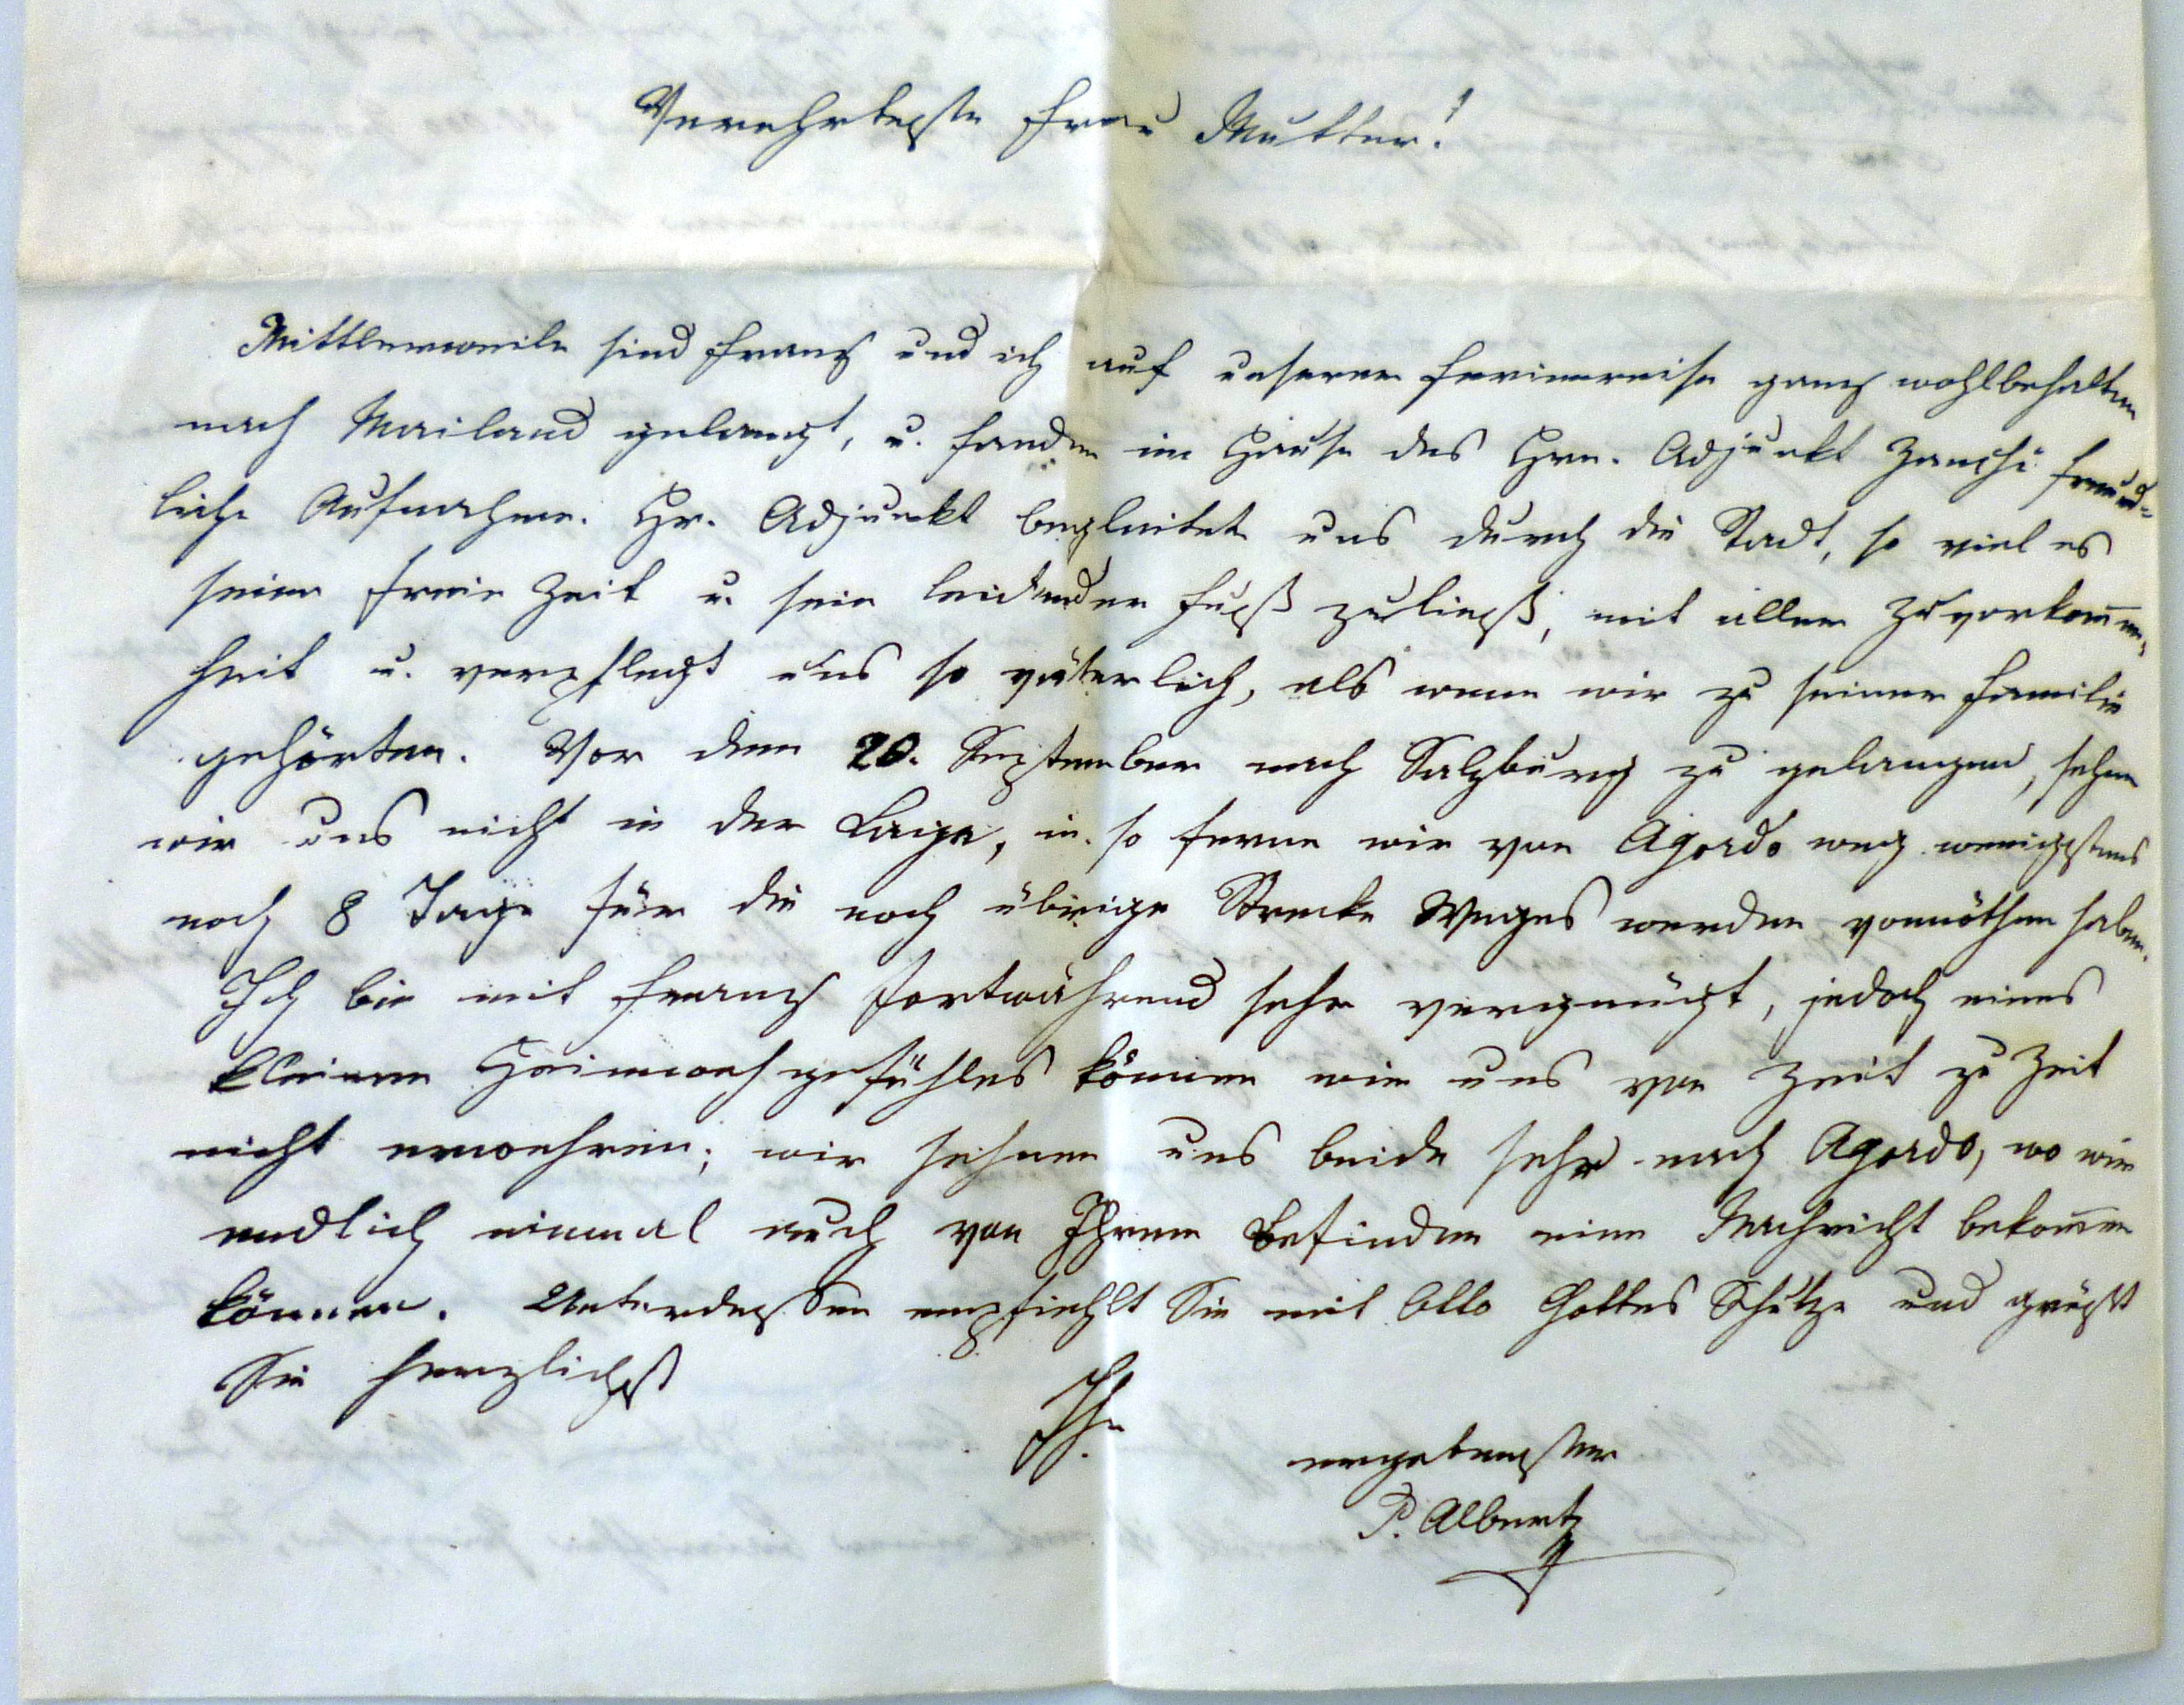 Verehrteste Frau Mutter!
Mittlerweile sind Franz und ich auf unserer Ferienreise ganz wohlbehalten
nach Mailand gelangt, u. fanden im Hause des Hrn. Adjunkt Zanchi freund=
liche Aufnahme. Hr. Adjunkt begleitet uns durch die Stadt, so viel es
seine freie Zeit u. sein leidender Fuß zuließ, mit aller Zuvorkommen=
heit u. verpflegt uns so väterlich, als wenn wir zu seiner Familie
gehörten. Vor dem 20. September nach Salzburg zu gelangen, sehen
wir uns nicht in der Lage, in so ferne wir von Agordo weg wenigstens
noch 8 Tage für die noch übrige Strecke Weges werden vonnöthen haben.
Ich bin mit Franz fortwährend sehr vergnügt, jedoch eines
kleinen Heimwehgefühles können wir uns von Zeit zu Zeit
nicht erwehren; wir sehnen uns beide sehr nach Agordo, wo wir
endlich einmal auch von Ihrem Befinden eine Nachricht bekommen
können. Unterdessen empfiehlt Sie mit Otto Gottes Schutze und grüßt
Sie herzlichst
Ihr
ergebenster
P. Albert